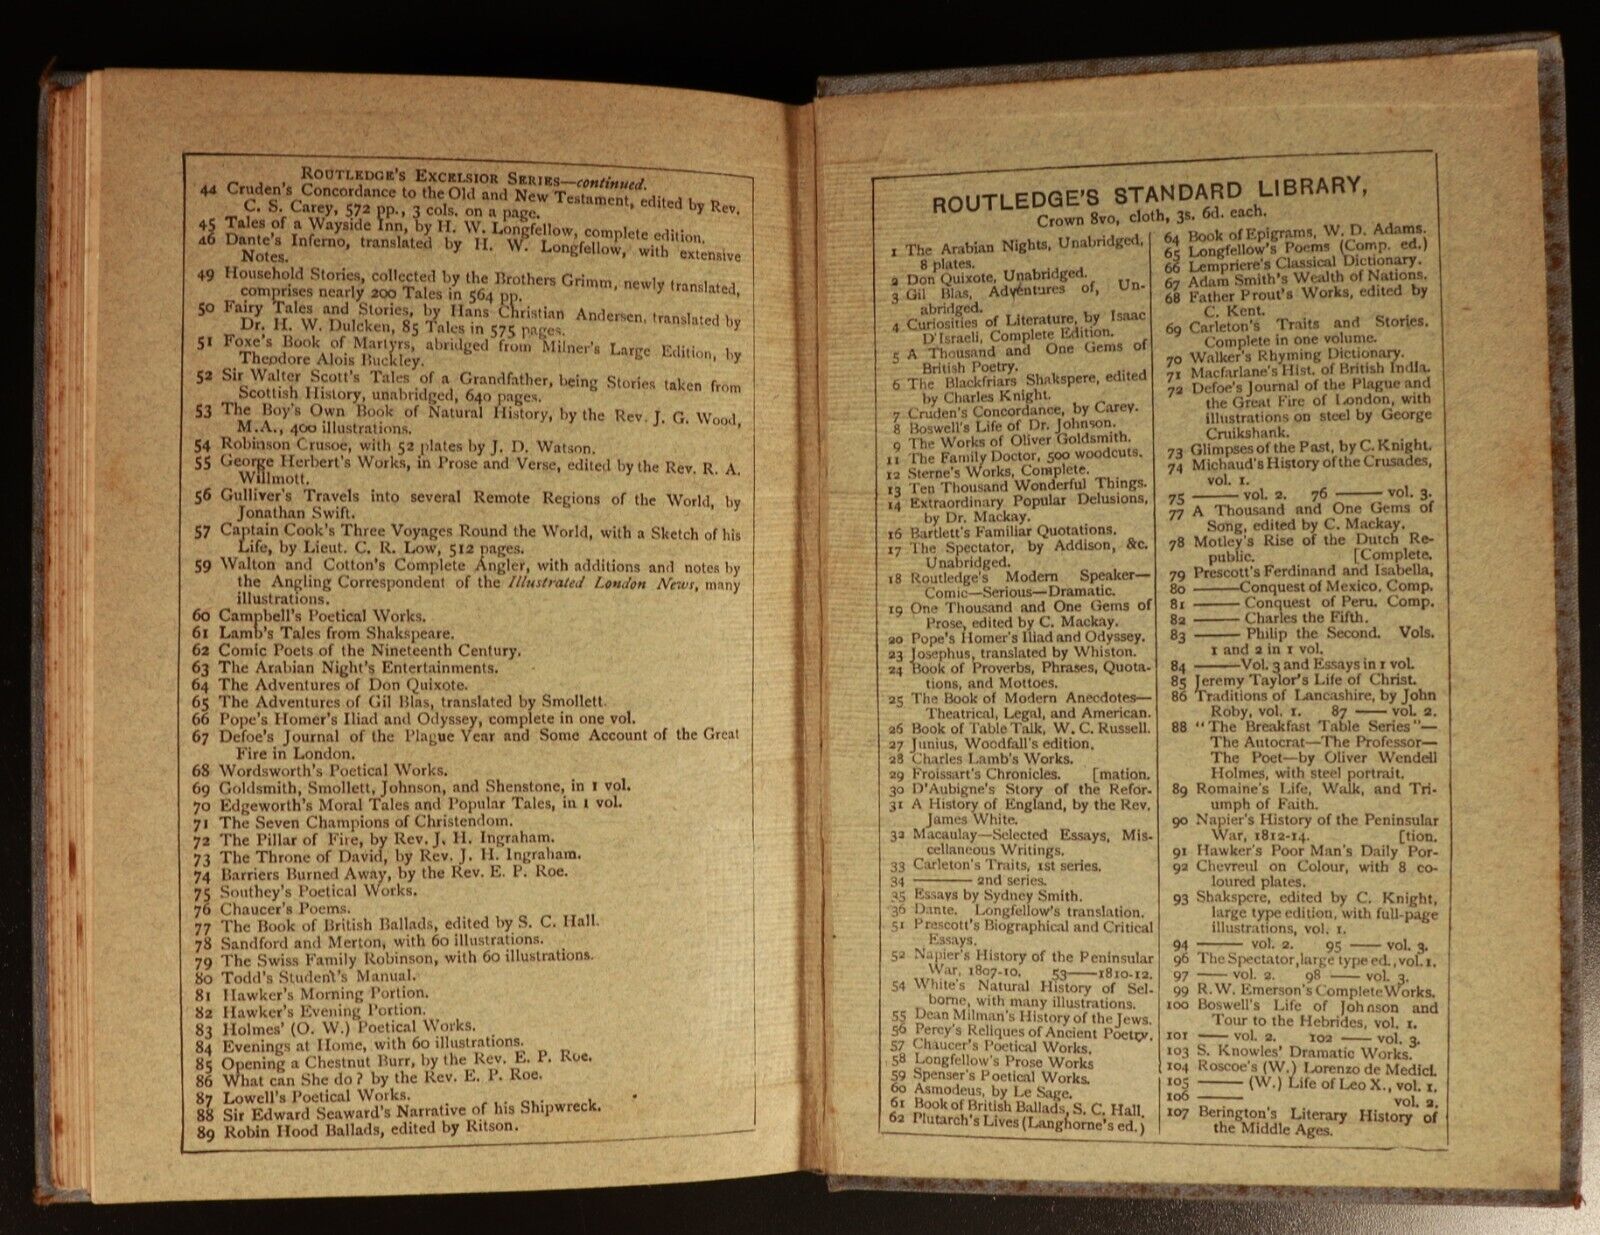 ROUTLEDGE'S EXCELSIOR SERIES—continued.
44 Cruden's Concordance to the Old and New Testament, edited by Rev.
C. S. Carey, 572 pp., 3 cols. on a page.
45 Tales of a Wayside Inn, by H. W. Longfellow, complete edition.
46 Dante's Inferno, translated by H. W. Longfellow, with extensive
Notes.
49 Household Stories, collected by the Brothers Grimm, newly translated,
comprises nearly 200 Tales in 564 pp.
50 Fairy Tales and Stories, by Hans Christian Andersen, translated by
Dr. H. W. Dulcken, 85 Tales in 575 pages.
51 Foxe's Book of Martyrs, abridged from Milner's Large Edition, by
Theodore Alois Buckley.
52 Sir Walter Scott's Tales of a Grandfather, being Stories taken from
Scottish History, unabridged, 640 pages.
53 The Boy's Own Book of Natural History, by the Rev. J. G. Wood,
M.A., 400 illustrations.
54 Robinson Crusoe, with 52 plates by J. D. Watson.
55 George Herbert's Works, in Prose and Verse, edited by the Rev. R. A.
Willmott.
56 Gulliver's Travels into several Remote Regions of the World, by
Jonathan Swift.
57 Captain Cook's Three Voyages Round the World, with a Sketch of his
Life, by Lieut. C. R. Low, 512 pages.
59 Walton and Cotton's Complete Angler, with additions and notes by
the Angling Correspondent of the Illustrated London News, many
illustrations.
60 Campbell's Poetical Works.
61 Lamb's Tales from Shakspeare.
62 Comic Poets of the Nineteenth Century.
63 The Arabian Night's Entertainments.
64 The Adventures of Don Quixote.
65 The Adventures of Gil Blas, translated by Smollett.
66 Pope's Homer's Iliad and Odyssey, complete in one vol.
67 Defoe's Journal of the Plague Year and Some Account of the Great
Fire in London.
68 Wordsworth's Poetical Works.
69 Goldsmith, Smollett, Johnson, and Shenstone, in 1 vol.
70 Edgeworth's Moral Tales and Popular Tales, in 1 vol.
71 The Seven Champions of Christendom.
72 The Pillar of Fire, by Rev. J. H. Ingraham.
73 The Throne of David, by Rev. J. H. Ingraham.
74 Barriers Burned Away, by the Rev. E. P. Roe.
75 Southey's Poetical Works.
76 Chaucer's Poems.
77 The Book of British Ballads, edited by S. C. Hall.
78 Sandford and Merton, with 60 illustrations.
79 The Swiss Family Robinson, with 60 illustrations.
80 Todd's Student's Manual.
81 Hawker's Morning Portion.
82 Hawker's Evening Portion.
83 Holmes' (O. W.) Poetical Works.
84 Evenings at Home, with 60 illustrations.
85 Opening a Chestnut Burr, by the Rev. E. P. Roe.
86 What can She do? by the Rev. E. P. Roe.
87 Lowell's Poetical Works.
88 Sir Edward Seaward's Narrative of his Shipwreck.
89 Robin Hood Ballads, edited by Ritson.
ROUTLEDGE'S STANDARD LIBRARY,
Crown 8vo, cloth, 3s. 6d. each.
1 The Arabian Nights, Unabridged,
8 plates.
2 Don Quixote, Unabridged.
3 Gil Blas, Adventures of, Un-
abridged.
4 Curiosities of Literature, by Isaac
D'Israeli, Complete Edition.
5 A Thousand and One Gems of
British Poetry.
6 The Blackfriars Shakspere, edited
by Charles Knight.
7 Cruden's Concordance, by Carey.
8 Boswell's Life of Dr. Johnson.
9 The Works of Oliver Goldsmith.
11 The Family Doctor, 500 woodcuts.
12 Sterne's Works, Complete.
13 Ten Thousand Wonderful Things.
14 Extraordinary Popular Delusions,
by Dr. Mackay.
16 Bartlett's Familiar Quotations.
17 The Spectator, by Addison, &c.
Unabridged.
18 Routledge's Modern Speaker—
Comic—Serious—Dramatic.
19 One Thousand and One Gems of
Prose, edited by C. Mackay.
20 Pope's Homer's Iliad and Odyssey.
23 Josephus, translated by Whiston.
24 Book of Proverbs, Phrases, Quota-
tions, and Mottoes.
25 The Book of Modern Anecdotes—
Theatrical, Legal, and American.
26 Book of Table Talk, W. C. Russell.
27 Junius, Woodfall's edition.
28 Charles Lamb's Works.
29 Froissart's Chronicles. [mation.
30 D'Aubigne's Story of the Refor-
31 A History of England, by the Rev.
James White.
32 Macaulay—Selected Essays, Mis-
cellaneous Writings.
33 Carleton's Traits, 1st series.
34 —— 2nd series.
35 Essays by Sydney Smith.
36 Dante. Longfellow's translation.
51 Prescott's Biographical and Critical
Essays.
52 Napier's History of the Peninsular
War, 1807-10. 53——1810-12.
54 White's Natural History of Sel-
borne, with many illustrations.
55 Dean Milman's History of the Jews.
56 Percy's Reliques of Ancient Poetry.
57 Chaucer's Poetical Works.
58 Longfellow's Prose Works
59 Spenser's Poetical Works.
60 Asmodeus, by Le Sage.
61 Book of British Ballads, S. C. Hall.
62 Plutarch's Lives (Langhorne's ed.)
64 Book of Epigrams, W. D. Adams.
65 Longfellow's Poems (Comp. ed.)
66 Lempriere's Classical Dictionary.
67 Adam Smith's Wealth of Nations.
68 Father Prout's Works, edited by
C. Kent.
69 Carleton's Traits and Stories.
Complete in one volume.
70 Walker's Rhyming Dictionary.
71 Macfarlane's Hist. of British India.
72 Defoe's Journal of the Plague and
the Great Fire of London, with
illustrations on steel by George
Cruikshank.
73 Glimpses of the Past, by C. Knight.
74 Michaud's History of the Crusades,
vol. 1.
75 —— vol. 2. 76 —— vol. 3.
77 A Thousand and One Gems of
Song, edited by C. Mackay.
78 Motley's Rise of the Dutch Re-
public. [Complete.
79 Prescott's Ferdinand and Isabella,
80 ——Conquest of Mexico. Comp.
81 —— Conquest of Peru. Comp.
82 —— Charles the Fifth.
83 —— Philip the Second. Vols.
1 and 2 in 1 vol.
84 ——Vol. 3 and Essays in 1 vol.
85 Jeremy Taylor's Life of Christ.
86 Traditions of Lancashire, by John
Roby, vol. 1. 87 —— vol. 2.
88 "The Breakfast Table Series"—
The Autocrat—The Professor—
The Poet—by Oliver Wendell
Holmes, with steel portrait.
89 Romaine's Life, Walk, and Tri-
umph of Faith.
90 Napier's History of the Peninsular
War, 1812-14. [tion.
91 Hawker's Poor Man's Daily Por-
92 Chevreul on Colour, with 8 co-
loured plates.
93 Shakspere, edited by C. Knight,
large type edition, with full-page
illustrations, vol. 1.
94 —— vol. 2. 95 —— vol. 3.
96 The Spectator, large type ed., vol. 1.
97 —— vol. 2. 98 —— vol. 3.
99 R.W. Emerson's Complete Works.
100 Boswell's Life of Johnson and
Tour to the Hebrides, vol. 1.
101 —— vol. 2. 102 —— vol. 3.
103 S. Knowles' Dramatic Works.
104 Roscoe's (W.) Lorenzo de Medici.
105 —— (W.) Life of Leo X., vol. 1.
106 —— vol. 2.
107 Berington's Literary History of
the Middle Ages.